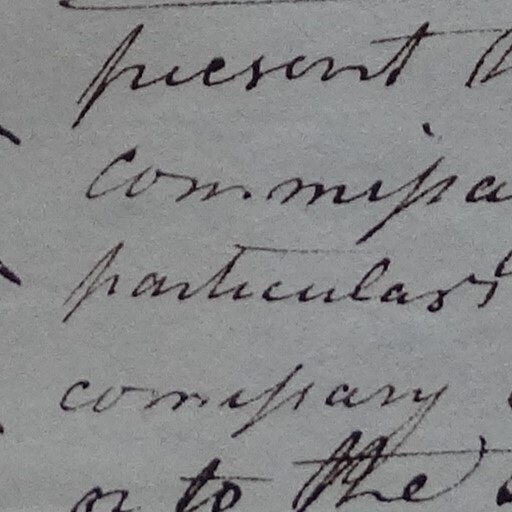 present
Commissa
particulars
commissary
or to the